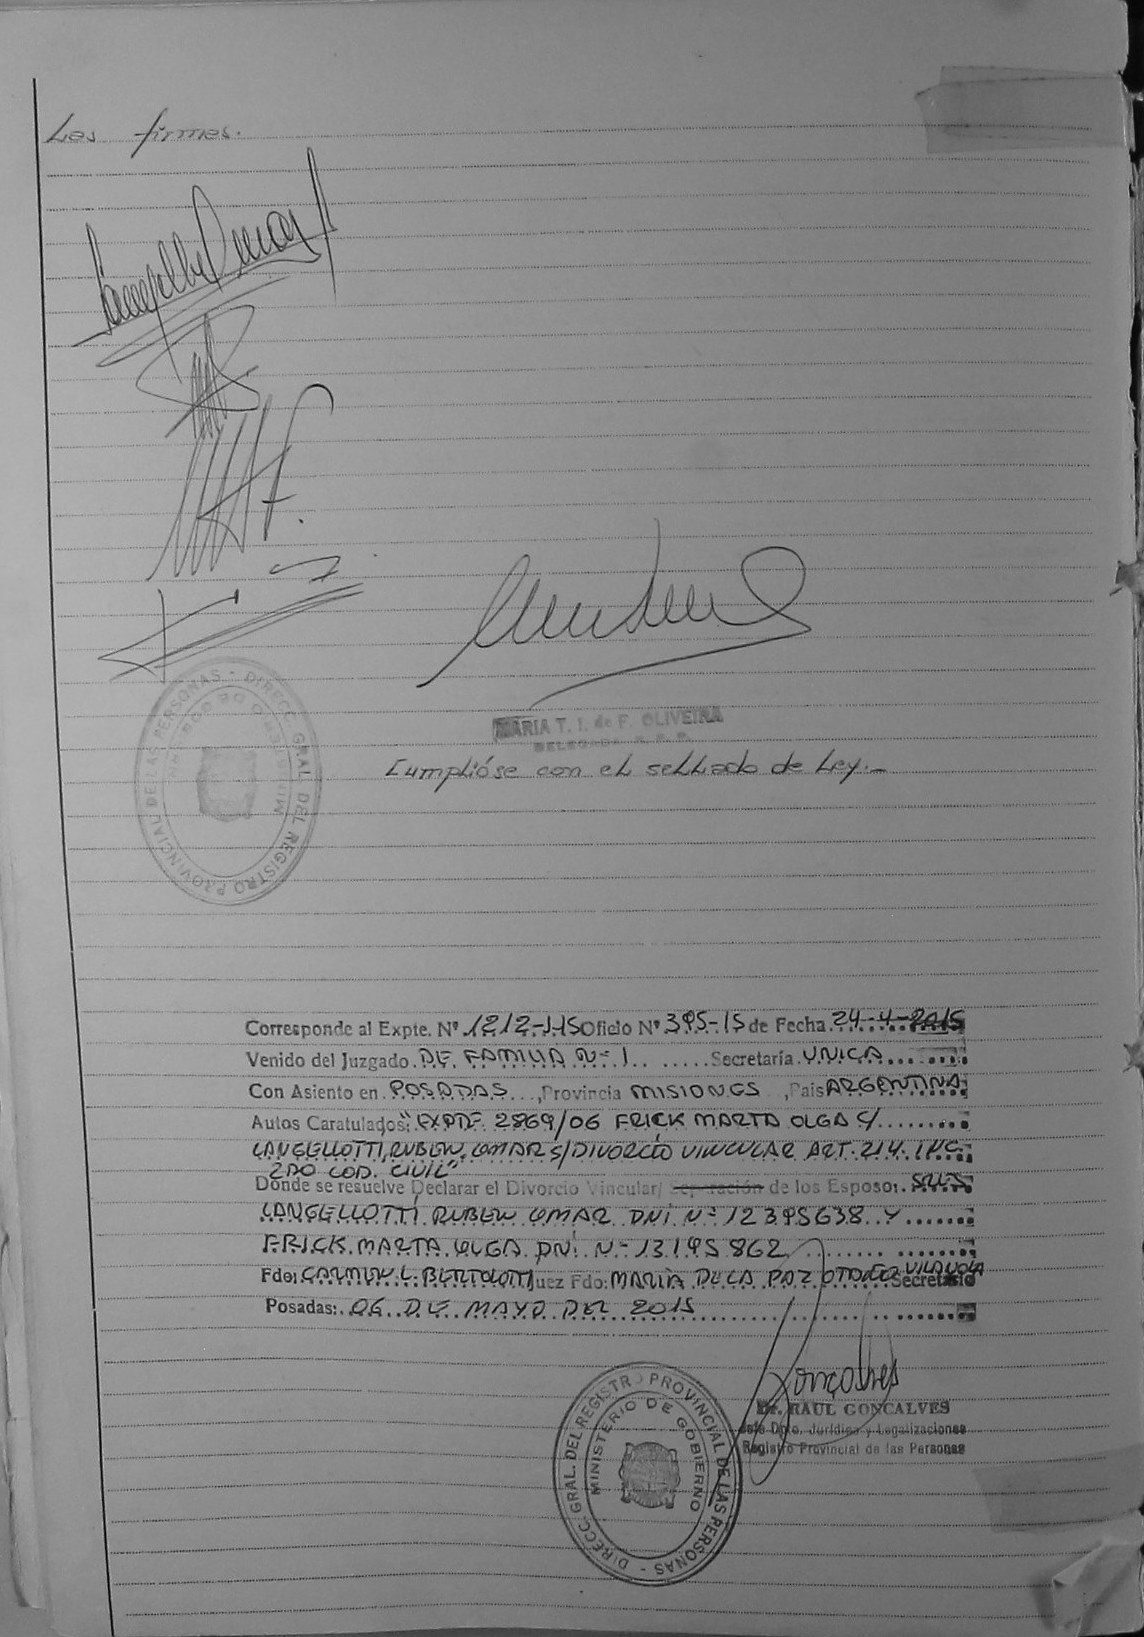 Las firmas.
MARIA T. I. de F. OLIVEIRA
DELEGADA R. P. P.
Cumplióse con el sellado de Ley.-
DIRECC. GRAL DEL REGISTRO PROVINCIAL DE LAS PERSONAS -
Corresponde al Expte. Nº 1212-J-15 Oficio Nº 395-15 de Fecha 24-4-2015
Venido del Juzgado DE FAMILIA Nº 1 Secretaría UNICA
Con Asiento en POSADAS, Provincia MISIONES, Pais ARGENTINA
Autos Caratulados: "EXPTE 2869/06 FRICK MARTA OLGA C/
LANGELLOTTI, RUBEN OMAR S/DIVORCIO VINCULAR ART. 214. INC.
2DO COD. CIVIL"
Donde se resuelve Declarar el Divorcio Vincular/ Separación de los Esposos: SRES
LANGELLOTTI RUBEN OMAR DNI Nº 12395638 Y
FRICK MARTA OLGA DNI Nº 13195862
Fdo: CARMEN L. BERTOLOTTI Juez Fdo: MARIA DE LA PAZ VILANOVA Secretario
Posadas: 06 DE MAYO DEL 2015
Gonçalves
Dr. RAUL GONCALVES
Jefe Dpto. Jurídico y Legalizaciones
Registro Provincial de las Personas
DIRECC. GRAL. DEL REGISTRO PROVINCIAL DE LAS PERSONAS -
MINISTERIO DE GOBIERNO